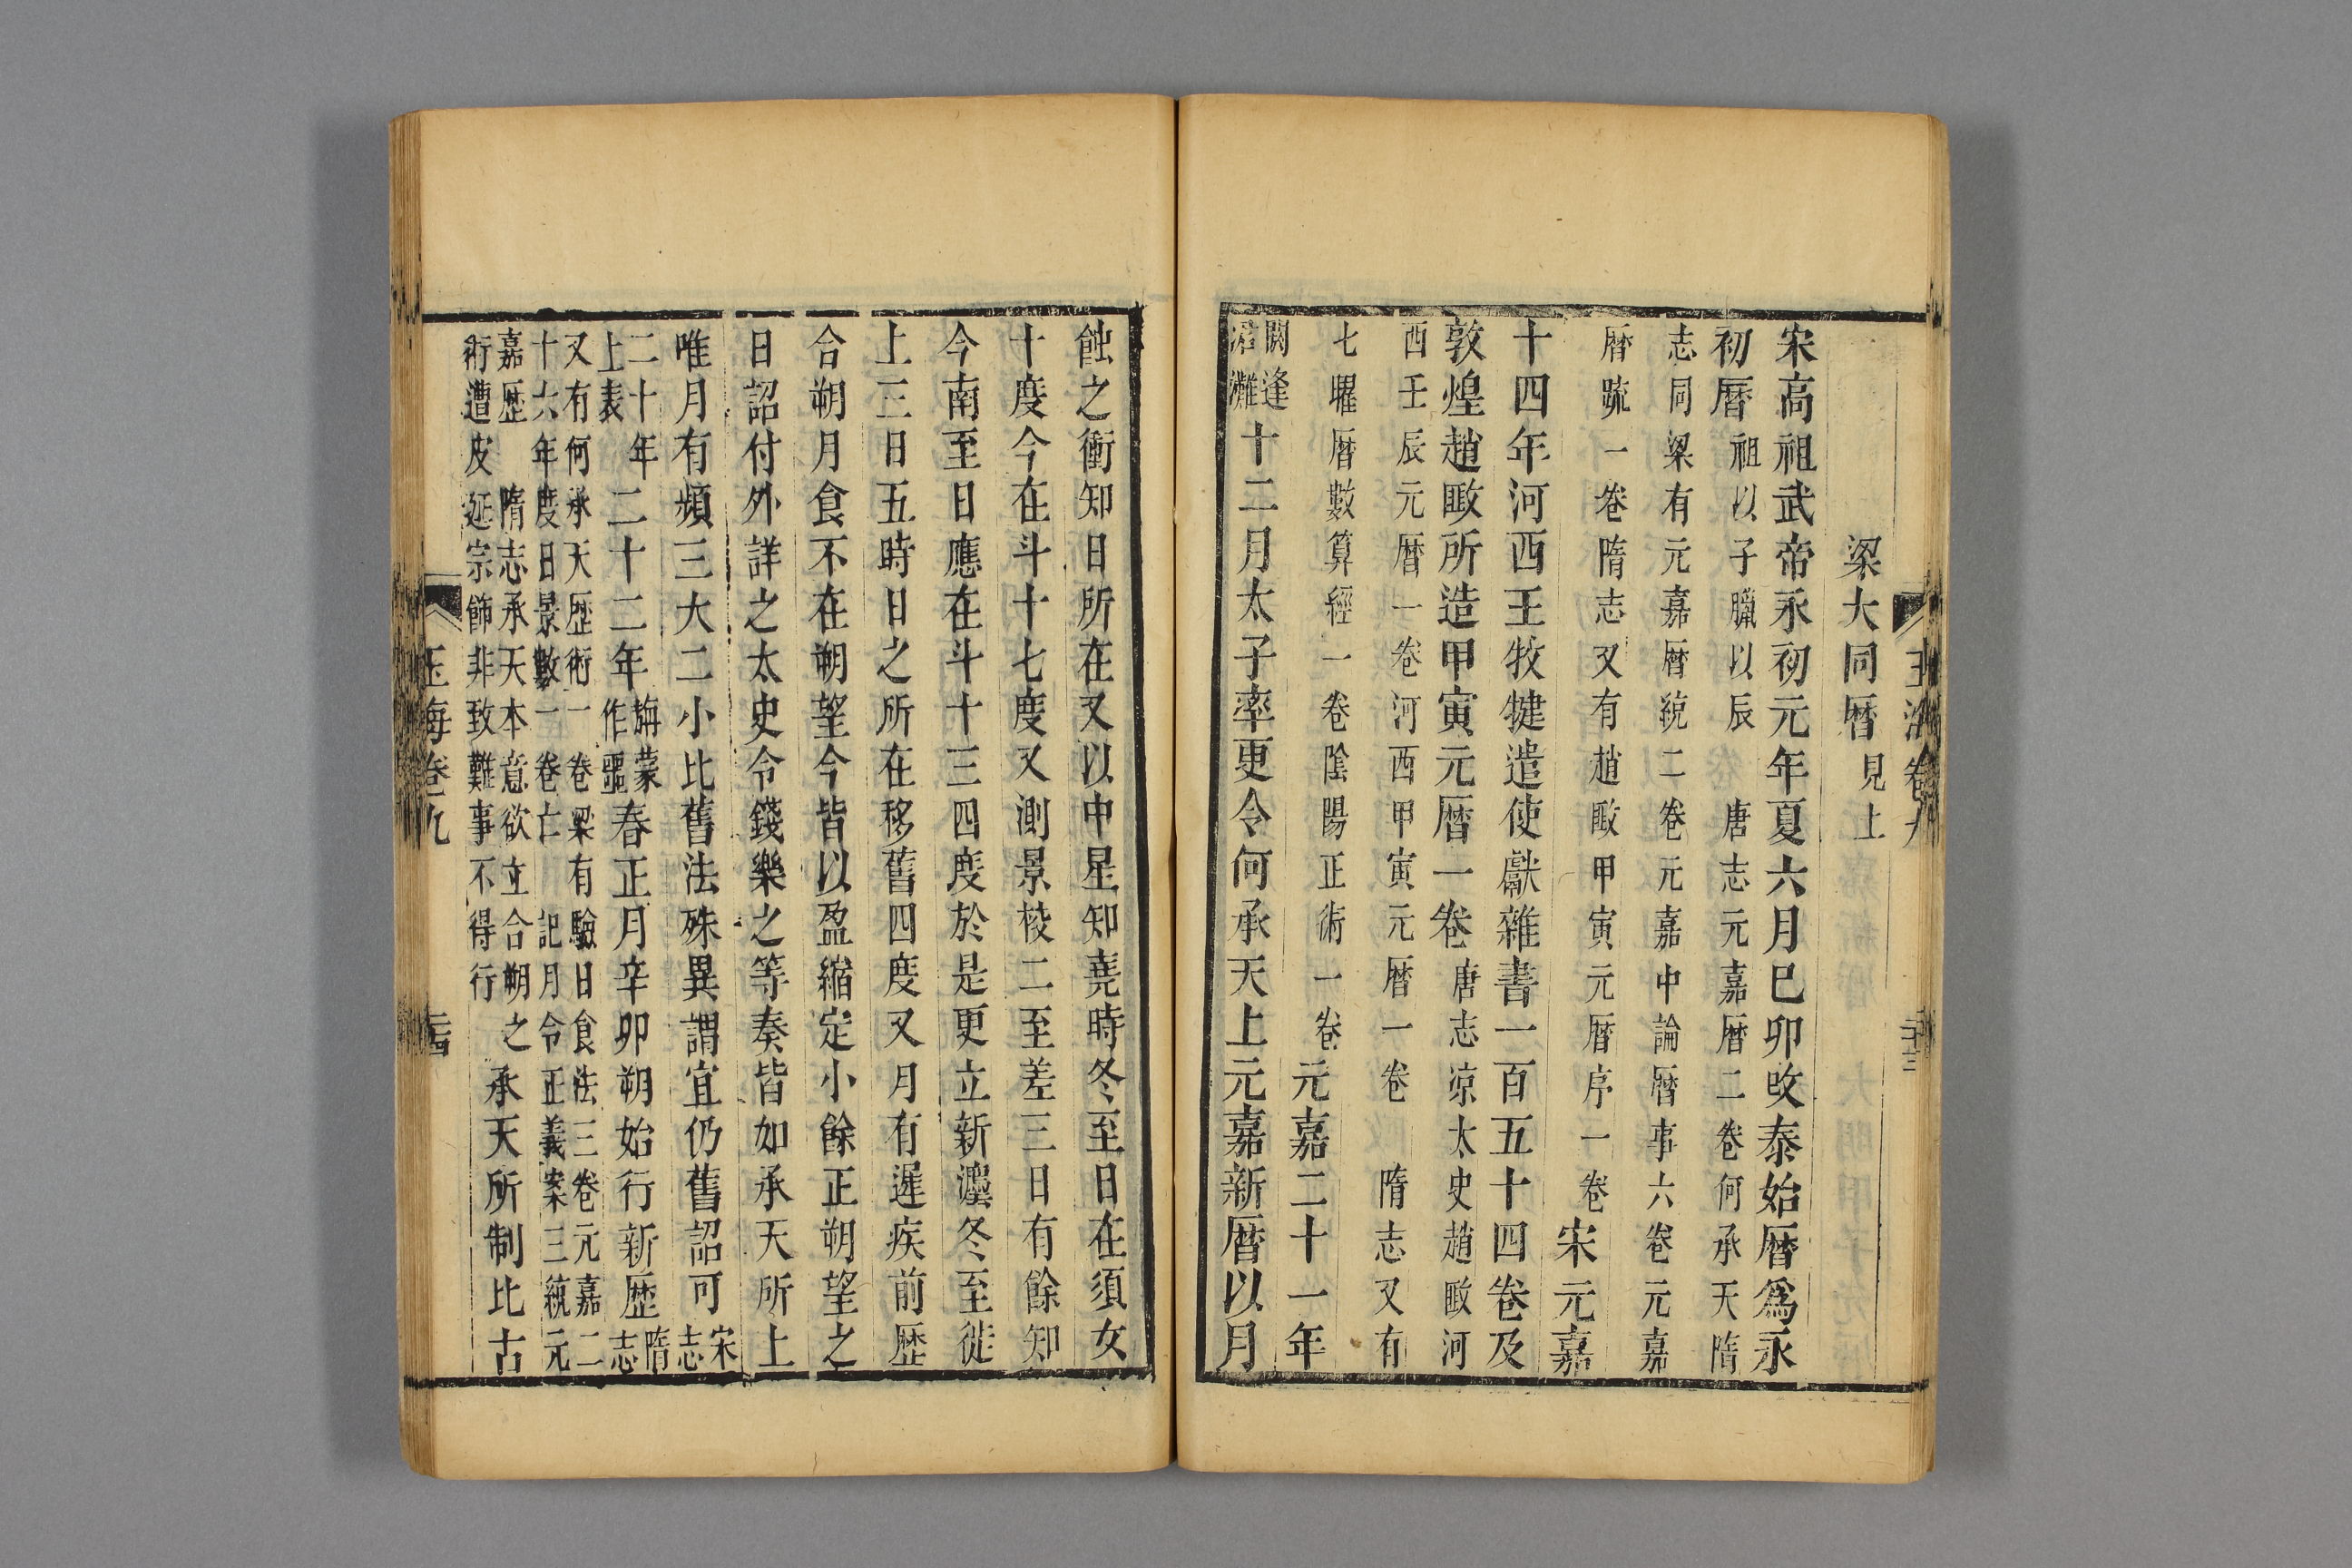 玉海卷九
二十三
梁大同曆見上
宋高祖武帝永初元年夏六月巳卯改泰始曆爲永
初曆祖以子臘以辰 唐志元嘉曆二卷何承天隋
志同梁有元嘉曆統二卷元嘉中論曆事六卷元嘉
曆疏一卷隋志又有趙𢾺甲寅元曆序一卷宋元嘉
十四年河西王牧犍遣使獻雜書一百五十四卷及
敦煌趙𢾺所造甲寅元曆一卷唐志凉太史趙𢾺河
西壬辰元曆一卷河西甲寅元曆一卷 隋志又有
七曜曆數算經一卷陰陽正術一卷元嘉二十一年
閼逢
涒灘
十二月太子率更令何承天上元嘉新曆以月
蝕之衝知日所在又以中星知堯時冬至日在須女
十度今在斗十七度又測景校二至差三日有餘知
今南至日應在斗十三四度於是更立新灋冬至徙
上三日五時日之所在移舊四度又月有遲疾前歷
合朔月食不在朔望今皆以盈縮定小餘正朔望之
日詔付外詳之太史令錢樂之等奏皆如承天所上
唯月有頻三大二小比舊法殊異謂宜仍舊詔可
宋
志
二十年
上表
二十二年
旃蒙
作噩
春正月辛卯朔始行新歷
隋
志
又有何承天歷術一卷梁有驗日食法三卷元嘉二
十六年度日景數一卷亡 記月令正義案三統元
嘉歷 隋志承天本意欲立合朔之
術遭皮延宗飾非致難事不得行
承天所制比古
玉海卷九
二十四